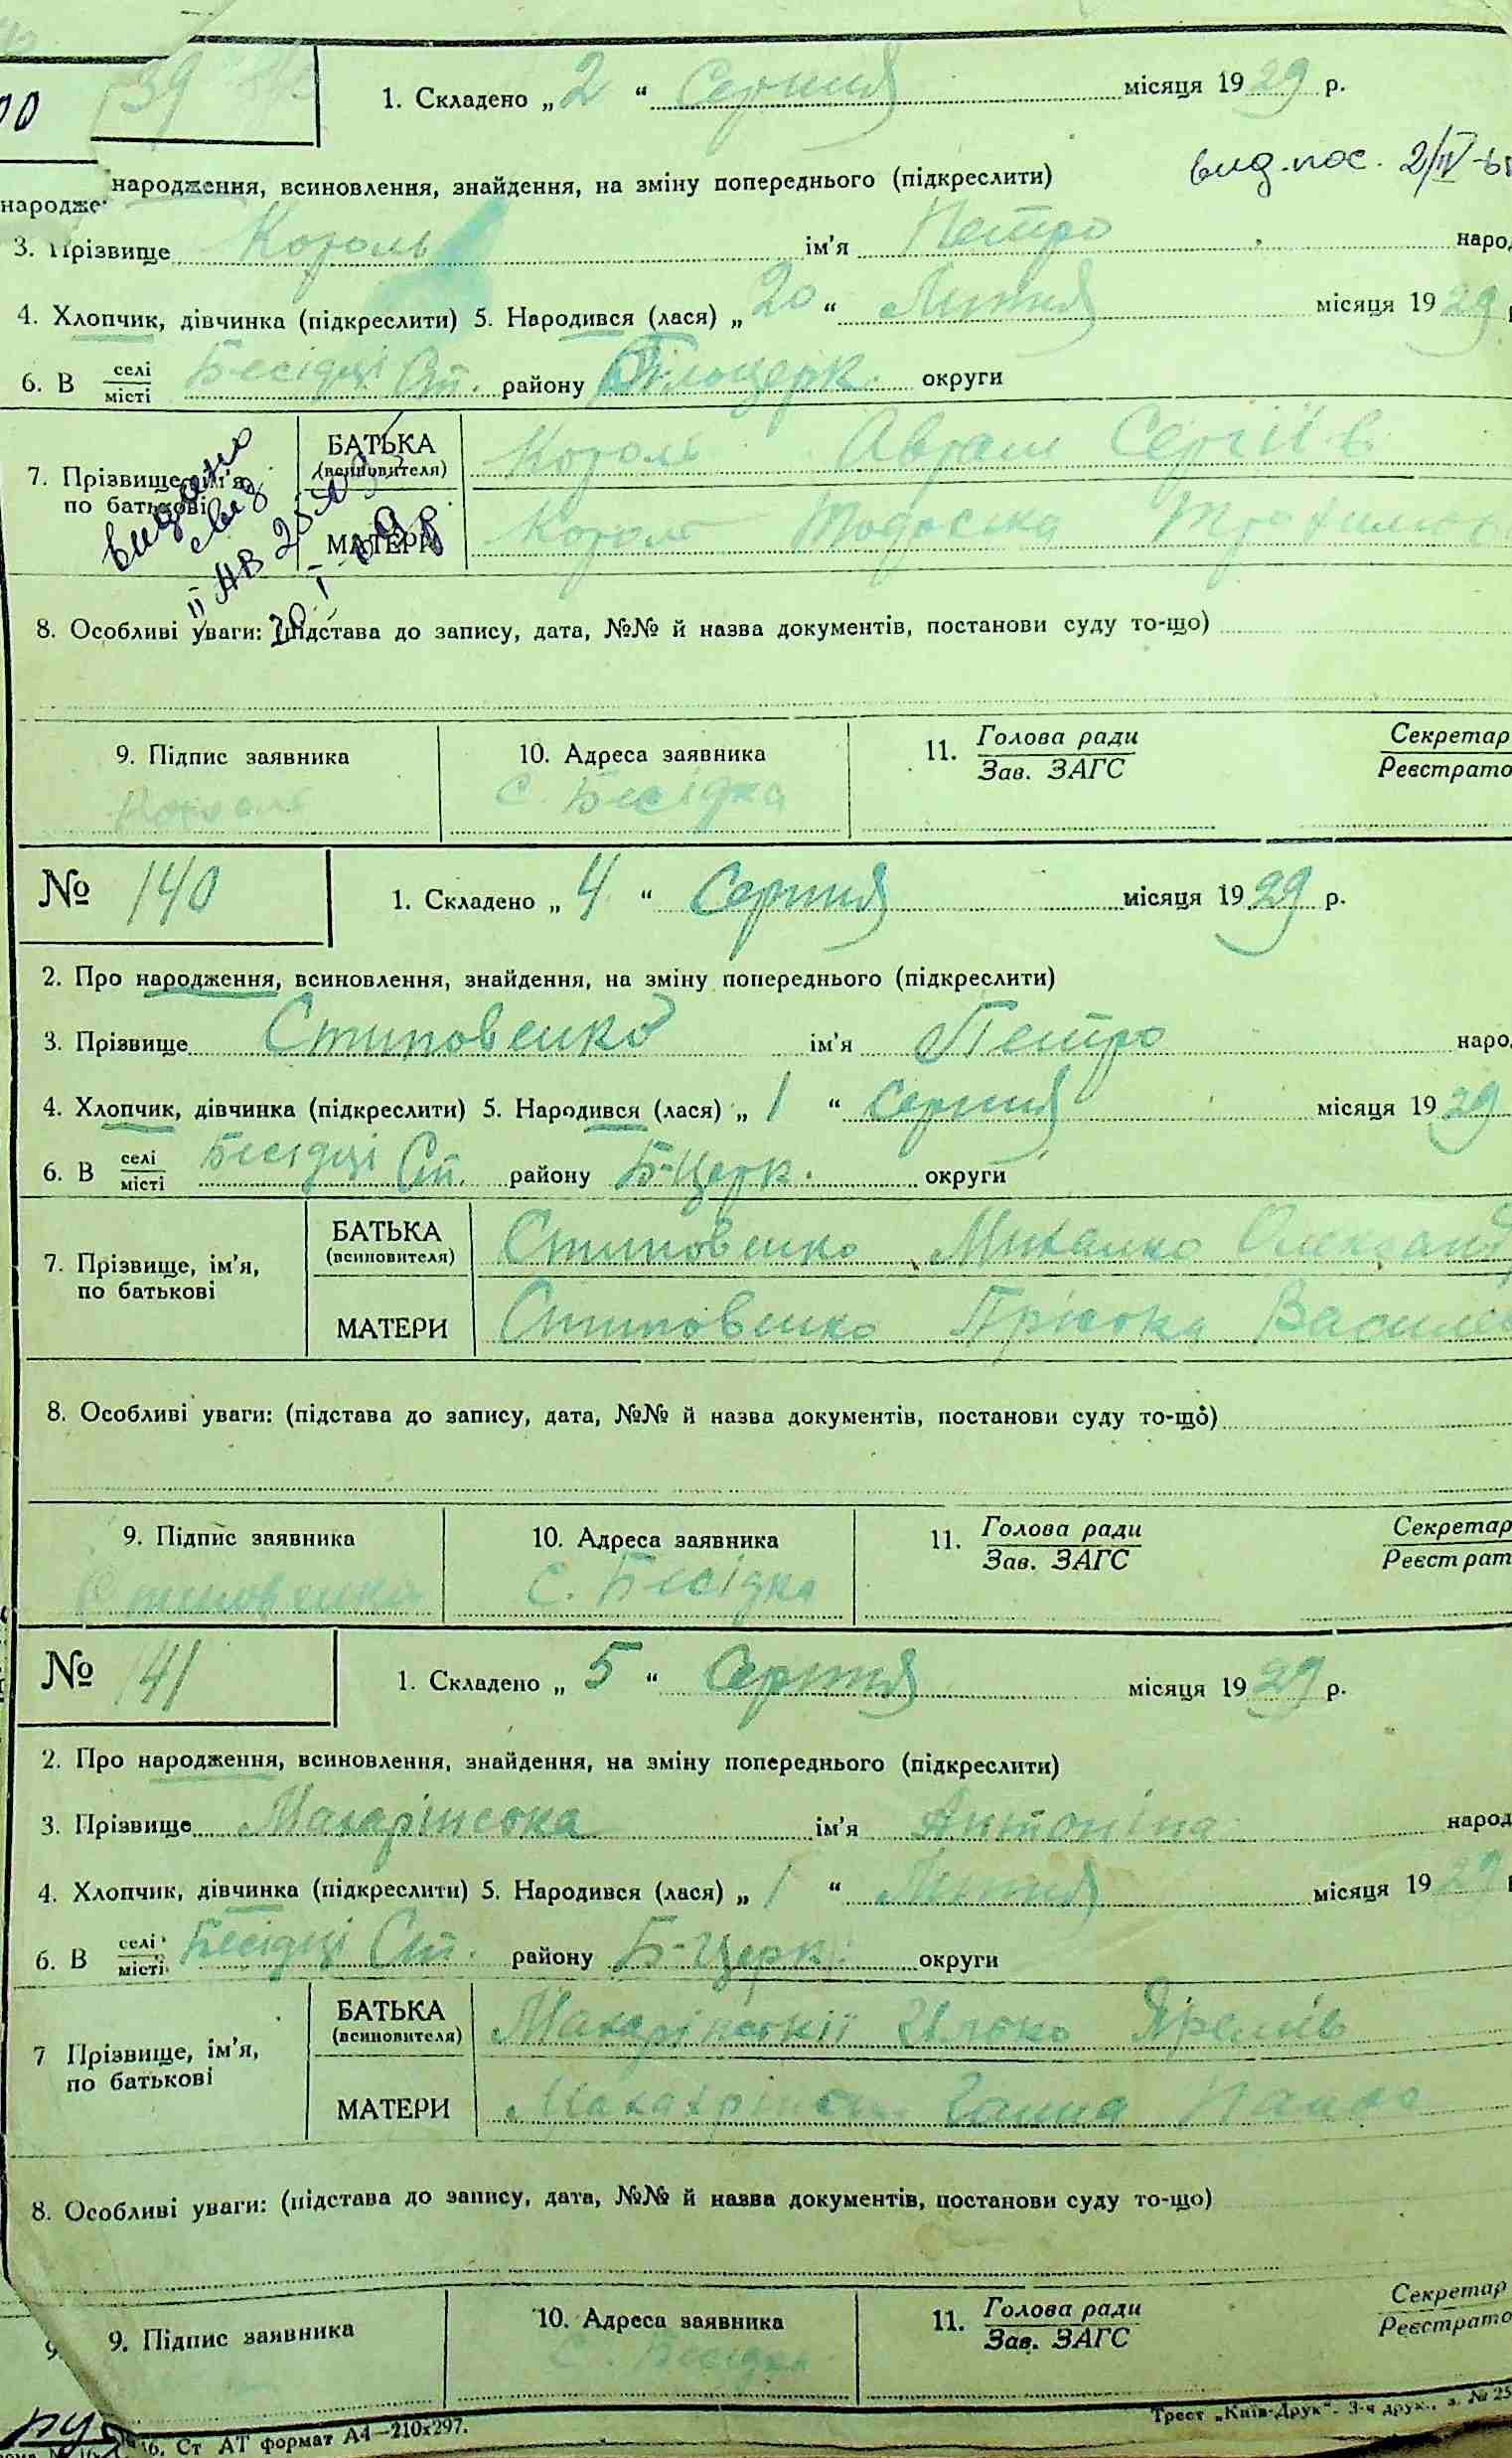 00
139
1. Складено „ 2 “ Серпня місяця 1929 р.
вид. пос. 2/IV
народження, всиновлення, знайдення, на зміну попереднього (підкреслити)
народже
3. Прізвище Король ім'я Петро наро
4. Хлопчик, дівчинка (підкреслити) 5. Народився (лася) „ 20 “ Липня місяця 1929
6. В селі/місті Бесідці Ст. району Білоцерк. округи
7. Прізвище, ім'я, по батькові
БАТЬКА (всиновителя) Король Аврам Сергіїв
МАТЕРИ Король Тодоська
видано
свід
II АВ
8. Особливі уваги: (підстава до запису, дата, №№ й назва документів, постанови суду то-що)
9. Підпис заявника 10. Адреса заявника 11. Голова ради/Зав. ЗАГС Секретар/Реєстрато
с. Бесідка
№ 140 1. Складено „ 4 “ Серпня місяця 1929 р.
2. Про народження, всиновлення, знайдення, на зміну попереднього (підкреслити)
3. Прізвище Стиповенко ім'я Петро наро
4. Хлопчик, дівчинка (підкреслити) 5. Народився (лася) „ 1 “ Серпня місяця 1929
6. В селі/місті Бесідці Ст. району Б-Церк. округи
7. Прізвище, ім'я, по батькові
БАТЬКА (всиновителя) Стиповенко Михайло Олександ
МАТЕРИ Стиповенко Пріська Василів
8. Особливі уваги: (підстава до запису, дата, №№ й назва документів, постанови суду то-що)
9. Підпис заявника 10. Адреса заявника 11. Голова ради/Зав. ЗАГС Секретар/Реєстрат
Стиповенко с. Бесідка
№ 141 1. Складено „ 5 “ Серпня місяця 1929 р.
2. Про народження, всиновлення, знайдення, на зміну попереднього (підкреслити)
3. Прізвище Махарінська ім'я Антоніна народ
4. Хлопчик, дівчинка (підкреслити) 5. Народився (лася) „ 1 “ Липня місяця 1929
6. В селі/місті Бесідці Ст. району Б-Церк. округи
7 Прізвище, ім'я, по батькові
БАТЬКА (всиновителя) Махарінській Ілько Яремів
МАТЕРИ Ганна
8. Особливі уваги: (підстава до запису, дата, №№ й назва документів, постанови суду то-що)
9. Підпис заявника 10. Адреса заявника 11. Голова ради/Зав. ЗАГС Секретар/Реєстрато
с. Бесідка
Ст АТ формат А4—210x297.
Трест „Київ-Друк“. 3-я друк., з. № 25